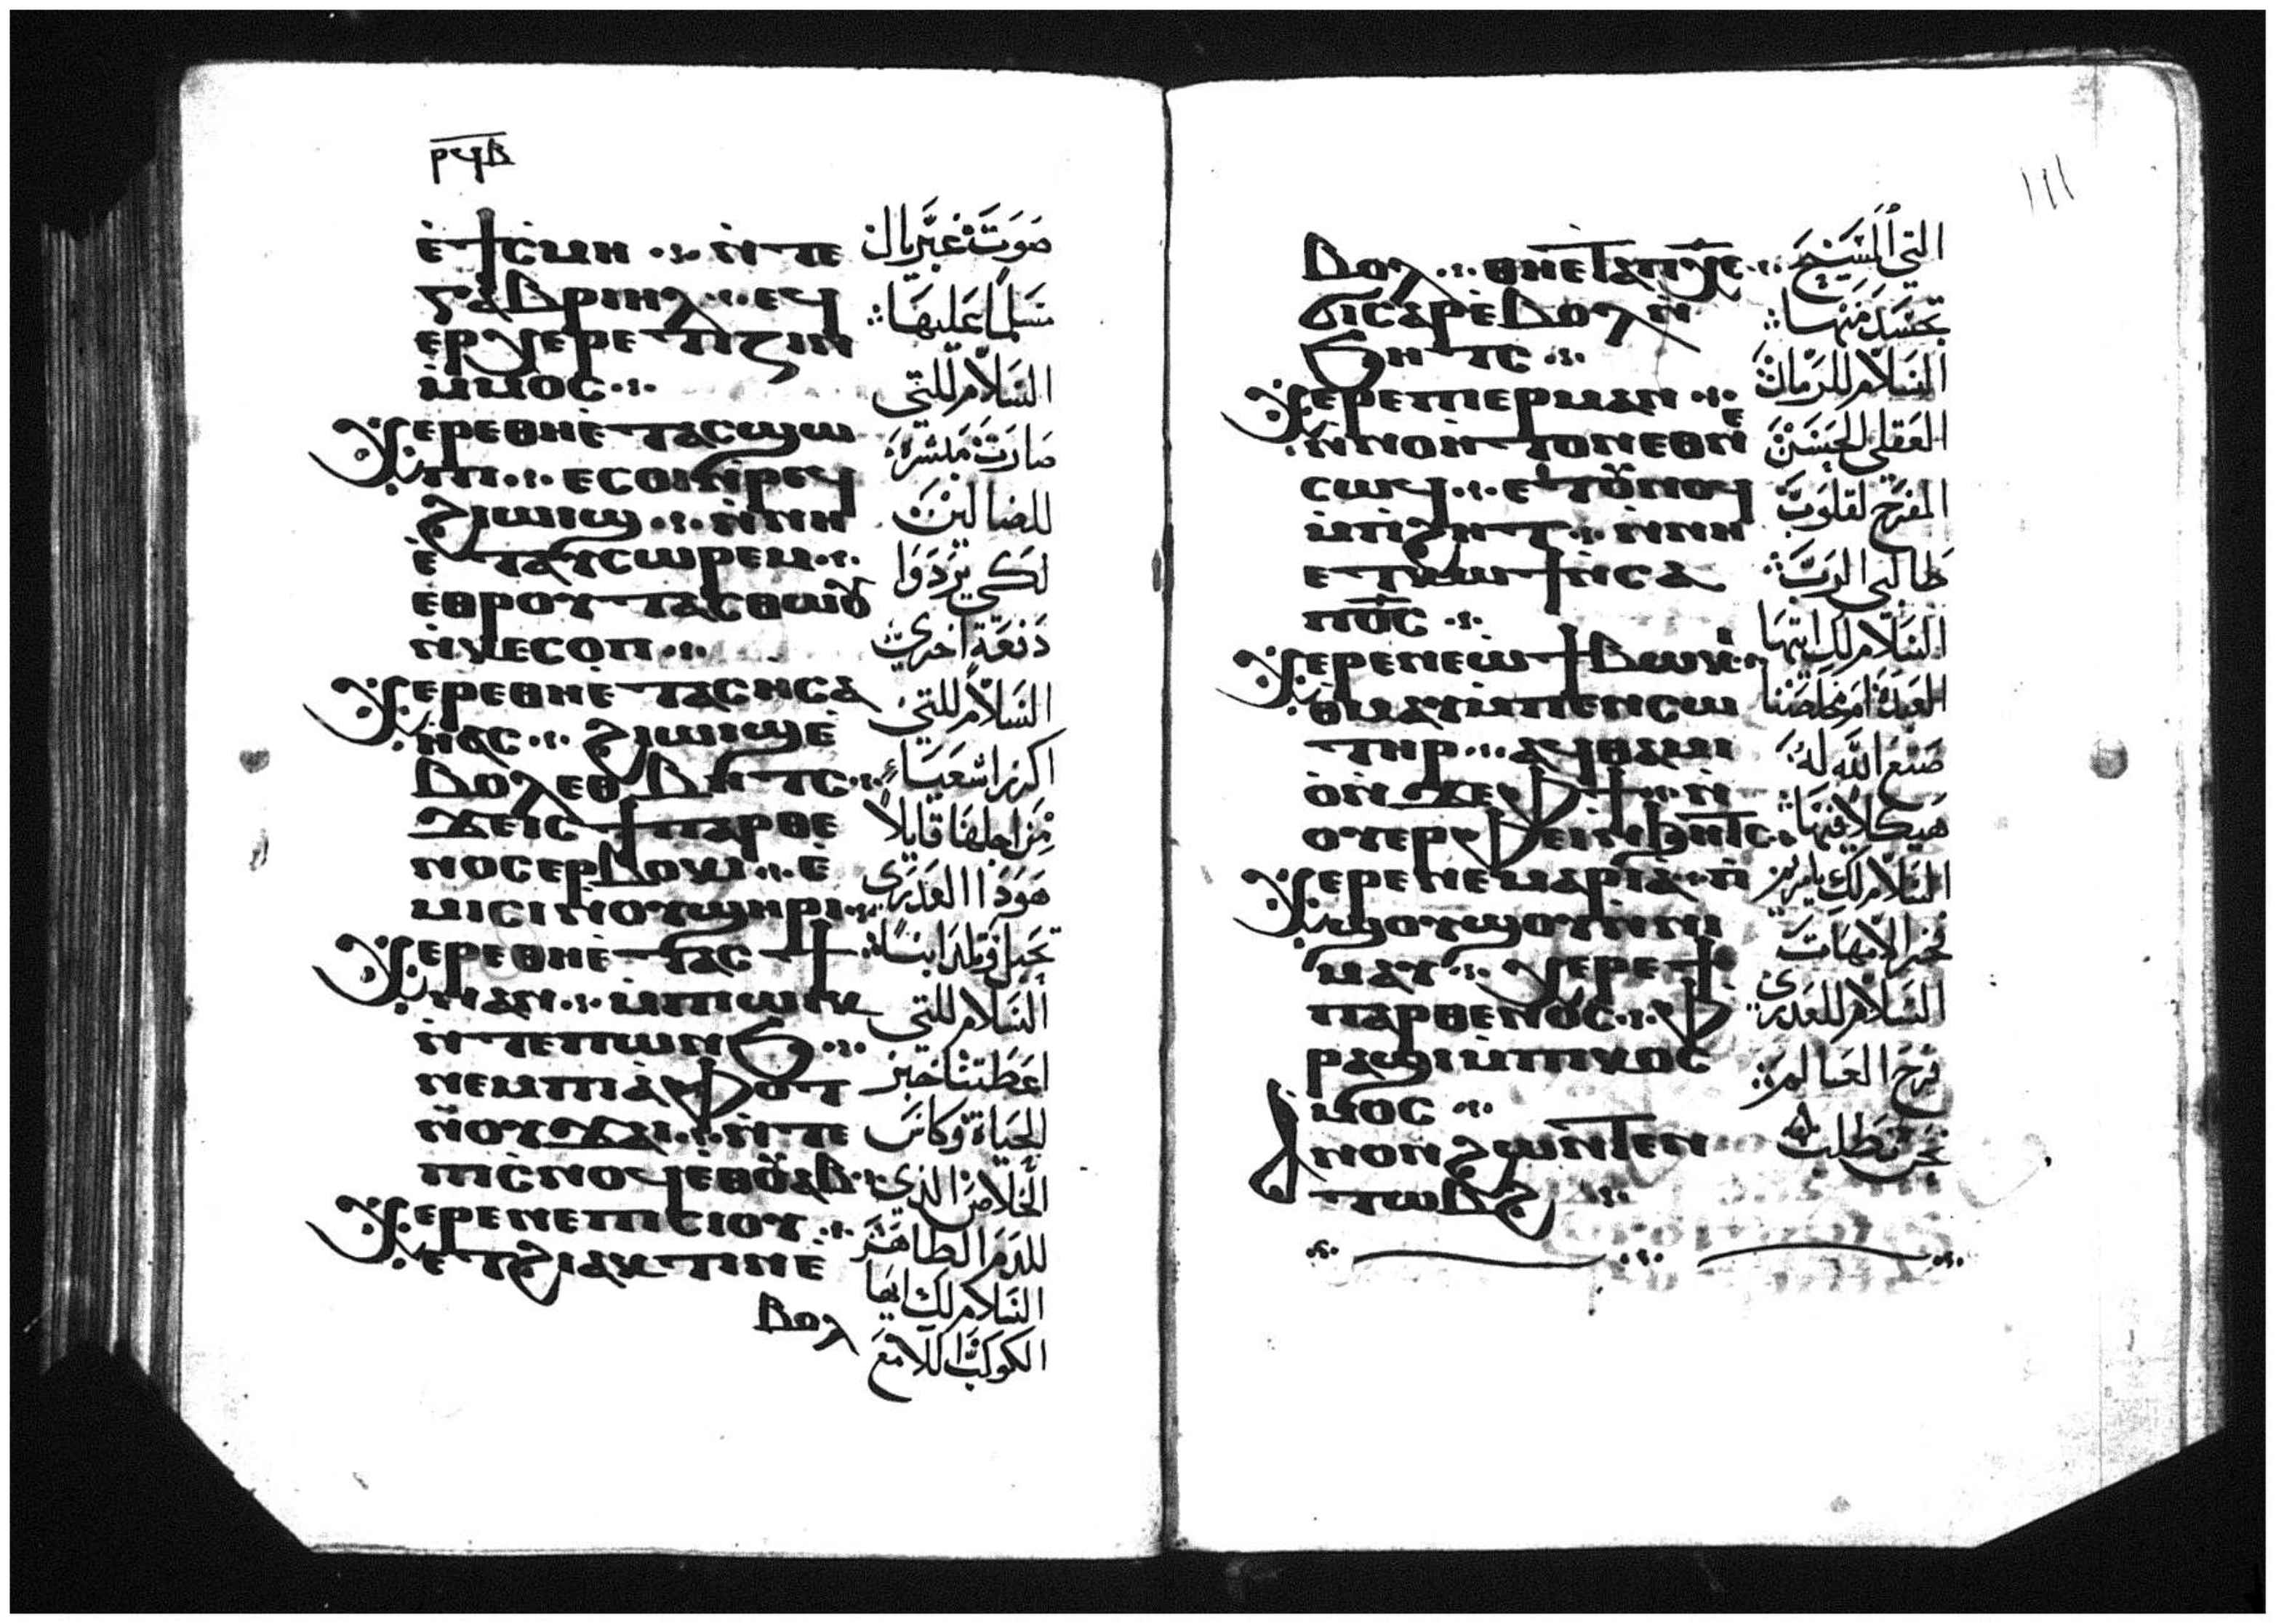 ⲣϥⲃ
ⲉ̀ϯⲥⲙⲏ ⲛ̀ⲧⲉ
ⲅⲁⲃⲣⲓⲏⲗ ⲉϥ
ⲉⲣⲭⲉⲣⲉⲧⲓⲍⲓⲛ
ⲙ̀ⲙⲟⲥ
ⲭⲉⲣⲉ ⲑⲏⲉ̀ⲧⲁⲥϣⲱ
ⲡⲓ ⲉⲥⲟⲓ ⲛ̀ⲣⲉϥ
ϩⲓϣⲓϣ ⲛ̀ⲛⲏ
ⲉ̀ⲧⲁⲩⲥⲱⲣⲉⲙ
ⲉⲑⲣⲟⲩⲧⲁⲥⲑⲱⲟⲩ
ⲛ̀ⲕⲉⲥⲟⲡ
ⲭⲉⲣⲉ ⲑⲏⲉ̀ⲧⲁⲥⲏⲥⲁ
ⲏ̀ⲁⲥ ϩⲓϣⲓϣ ⲉ̀
ⲃⲟⲗ ⲉⲑⲃⲏⲧⲥ
ϫⲉ ⲓⲥ ϯⲡⲁⲣⲑⲉ
ⲛⲟⲥ ⲉⲣⲃⲟⲕⲓ ⲉ̀
ⲙⲓⲥⲓ ⲛ̀ⲟⲩϣⲏⲣⲓ
ⲭⲉⲣⲉ ⲑⲏⲉ̀ⲧⲁⲥϯ
ⲛⲁⲛ ⲙ̀ⲡⲱⲓⲕ
ⲛ̀ⲧⲉ ⲡⲱⲛϧ
ⲛⲉⲙ ⲡⲓⲁ̀ⲫⲟⲧ
ⲛ̀ⲟⲩϫⲁⲓ ⲛ̀ⲧⲉ
ⲡⲓⲥ̀ⲛⲟϥ ⲉⲑⲟⲩⲁⲃ
ⲭⲉⲣⲉ ⲛⲉ ⲡⲓⲥⲓⲟⲩ
ⲉⲧϩⲓⲁⲕⲧⲓⲛ ⲉ̀
ⲃⲟⲗ
صوت غبريال
مسلما عليها
السلام للتي
صارت مبشره
للضالين
لكي يردوا
دفعة اخرى
السلام للتي
اكرز اشعياء
من اجلها قايلا
هوذا العذرى
تحبل وتلد ابنا
السلام للتي
اعطتنا خبز
الحياة وكاس
الخلاص الذي
للدم الطاهر
السلام لك ايها
الكوكب اللامع
ⲃⲟⲗ ⲑⲏⲉⲧⲁ ⲡⲭ̅ⲥ̅
ϭⲓⲥⲁⲣⲝ ⲉ̀ⲃⲟⲗ ⲛ̀
ϧⲏⲧⲥ
ⲭⲉⲣⲉ ⲡⲓⲉⲣⲙⲁⲛ
ⲛ̀ⲛⲟⲏ̀ⲧⲟⲛ ⲉⲑⲛⲉ
ⲥⲱϥ ⲉⲧⲟⲩⲛⲟϥ
ⲙ̀ⲡϩⲏⲧ ⲛ̀ⲛⲏ
ⲉⲧⲕⲱϯ ⲛ̀ⲥⲁ
ⲡϭⲥ
ⲭⲉⲣⲉ ⲛⲉ ⲱ̀ ϯⲃⲱⲕⲓ
ⲑ̀ⲙⲁⲩ ⲙ̀ⲡⲉⲛⲥⲱ
ⲧⲏⲣ ⲁϥⲑⲁⲙⲓ
ⲟ̀ⲛ ϫⲉ ⲫϯ ⲛ̀
ⲟⲩⲉⲣⲫⲉⲓ ⲛ̀ϧⲏⲧⲥ
ⲭⲉⲣⲉ ⲛⲉ ⲙⲁⲣⲓⲁ ⲡ̀
ϣⲟⲩϣⲟⲩ ⲛ̀ⲛⲓ
ⲙⲁⲩ ⲭⲉⲣⲉ ϯ
ⲡⲁⲣⲑⲉⲛⲟⲥ ⲫ
ⲣⲁϣⲓ ⲙ̀ⲡⲓⲕⲟⲥ
ⲙⲟⲥ
ⲁⲛⲟⲛ ϩⲱⲛ ⲧⲉⲛ
ⲧⲱⲃϩ
التي المسيح
تجسد منها
السلام للرمان
العقلي الحسن
المفرح لقلوب
طالبي الرب
السلام لك ايتها
العبدة ام مخلصنا
صنع الله له
هيكلا فيها
السلام لك يا مريم
فخر الامهات
السلام للعذرى
فرح العالم
نحن نطلب